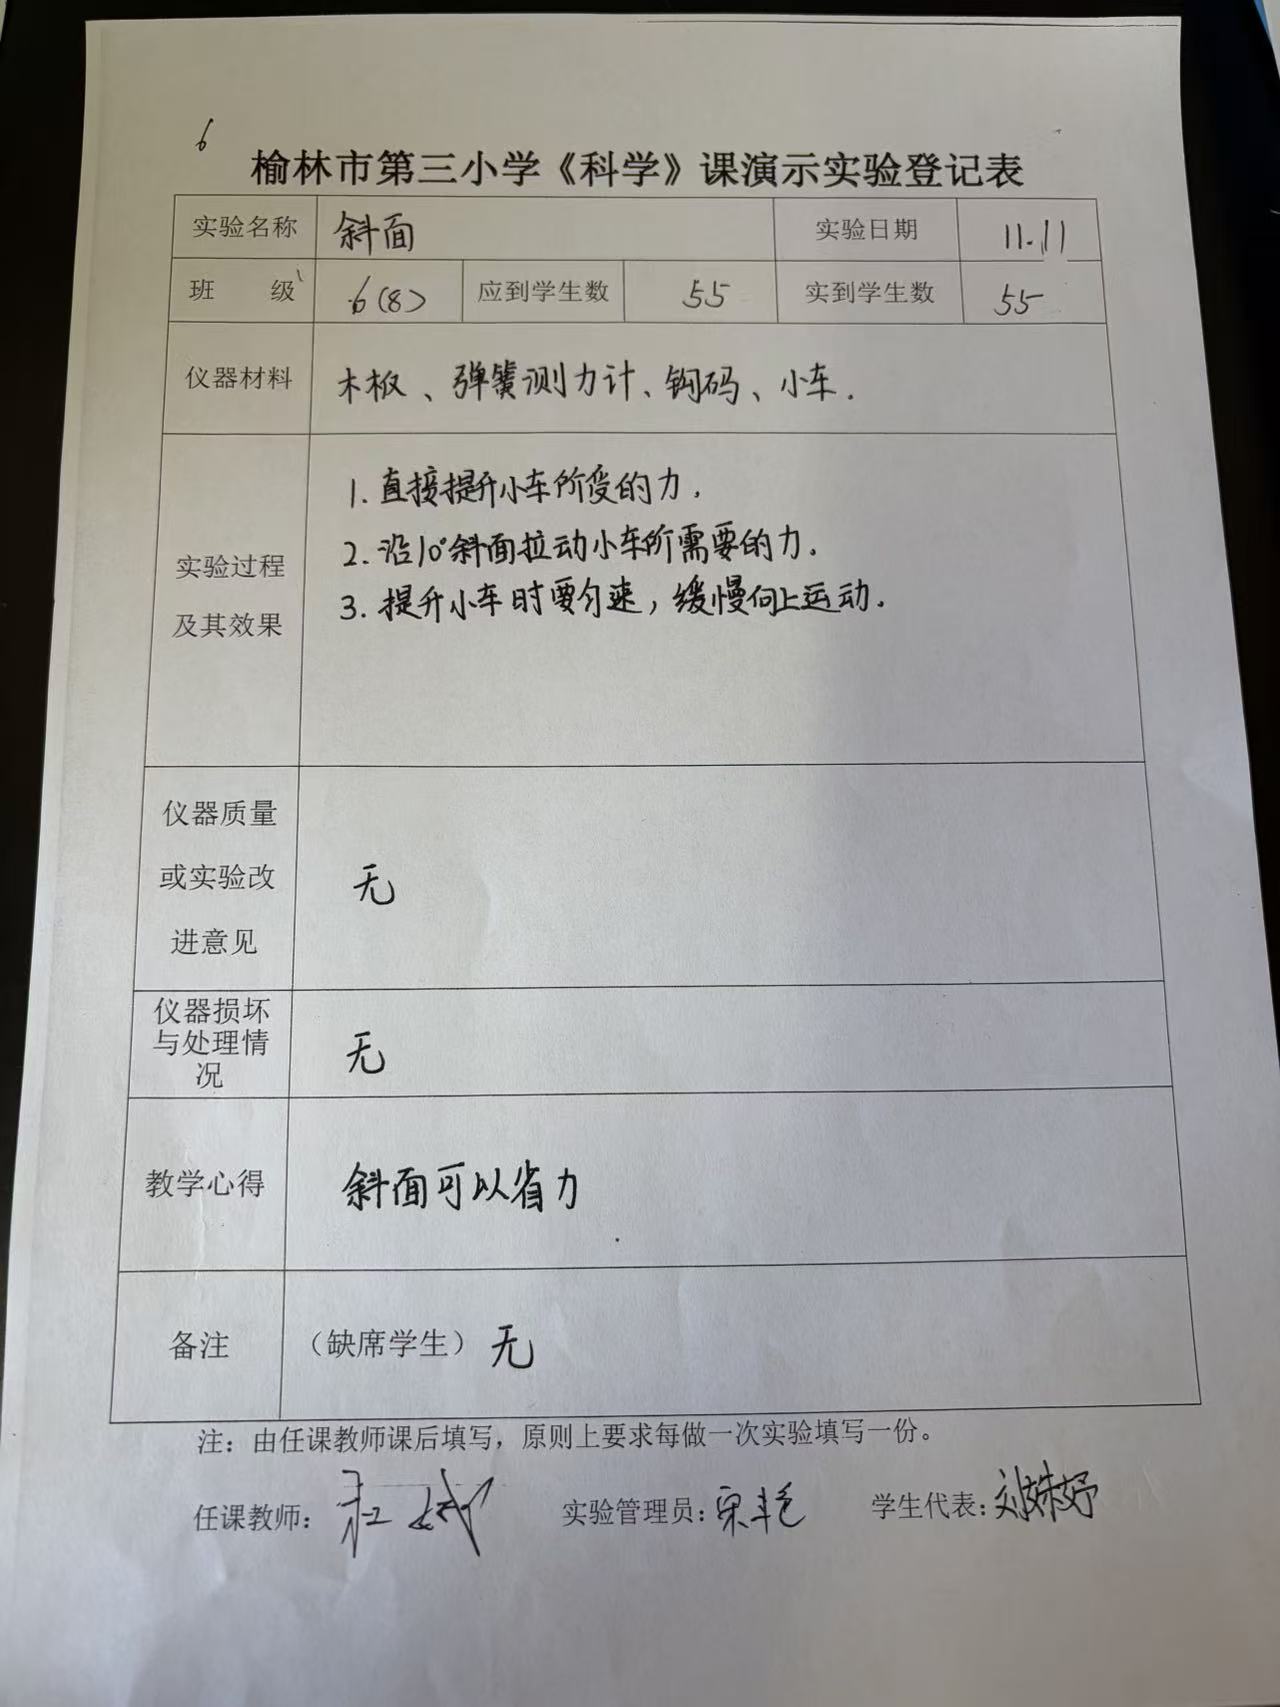 6
榆林市第三小学《科学》课演示实验登记表
实验名称 斜面 实验日期 11.11
班 级 6(8) 应到学生数 55 实到学生数 55
仪器材料 木板、弹簧测力计、钩码、小车.
实验过程
及其效果
1. 直接提升小车所受的力.
2. 沿10°斜面拉动小车所需要的力.
3. 提升小车时要匀速,缓慢向上运动.
仪器质量
或实验改
进意见
无
仪器损坏
与处理情
况
无
教学心得 斜面可以省力
备注 （缺席学生）无
注：由任课教师课后填写，原则上要求每做一次实验填写一份。
任课教师： 实验管理员： 学生代表：刘姝妤